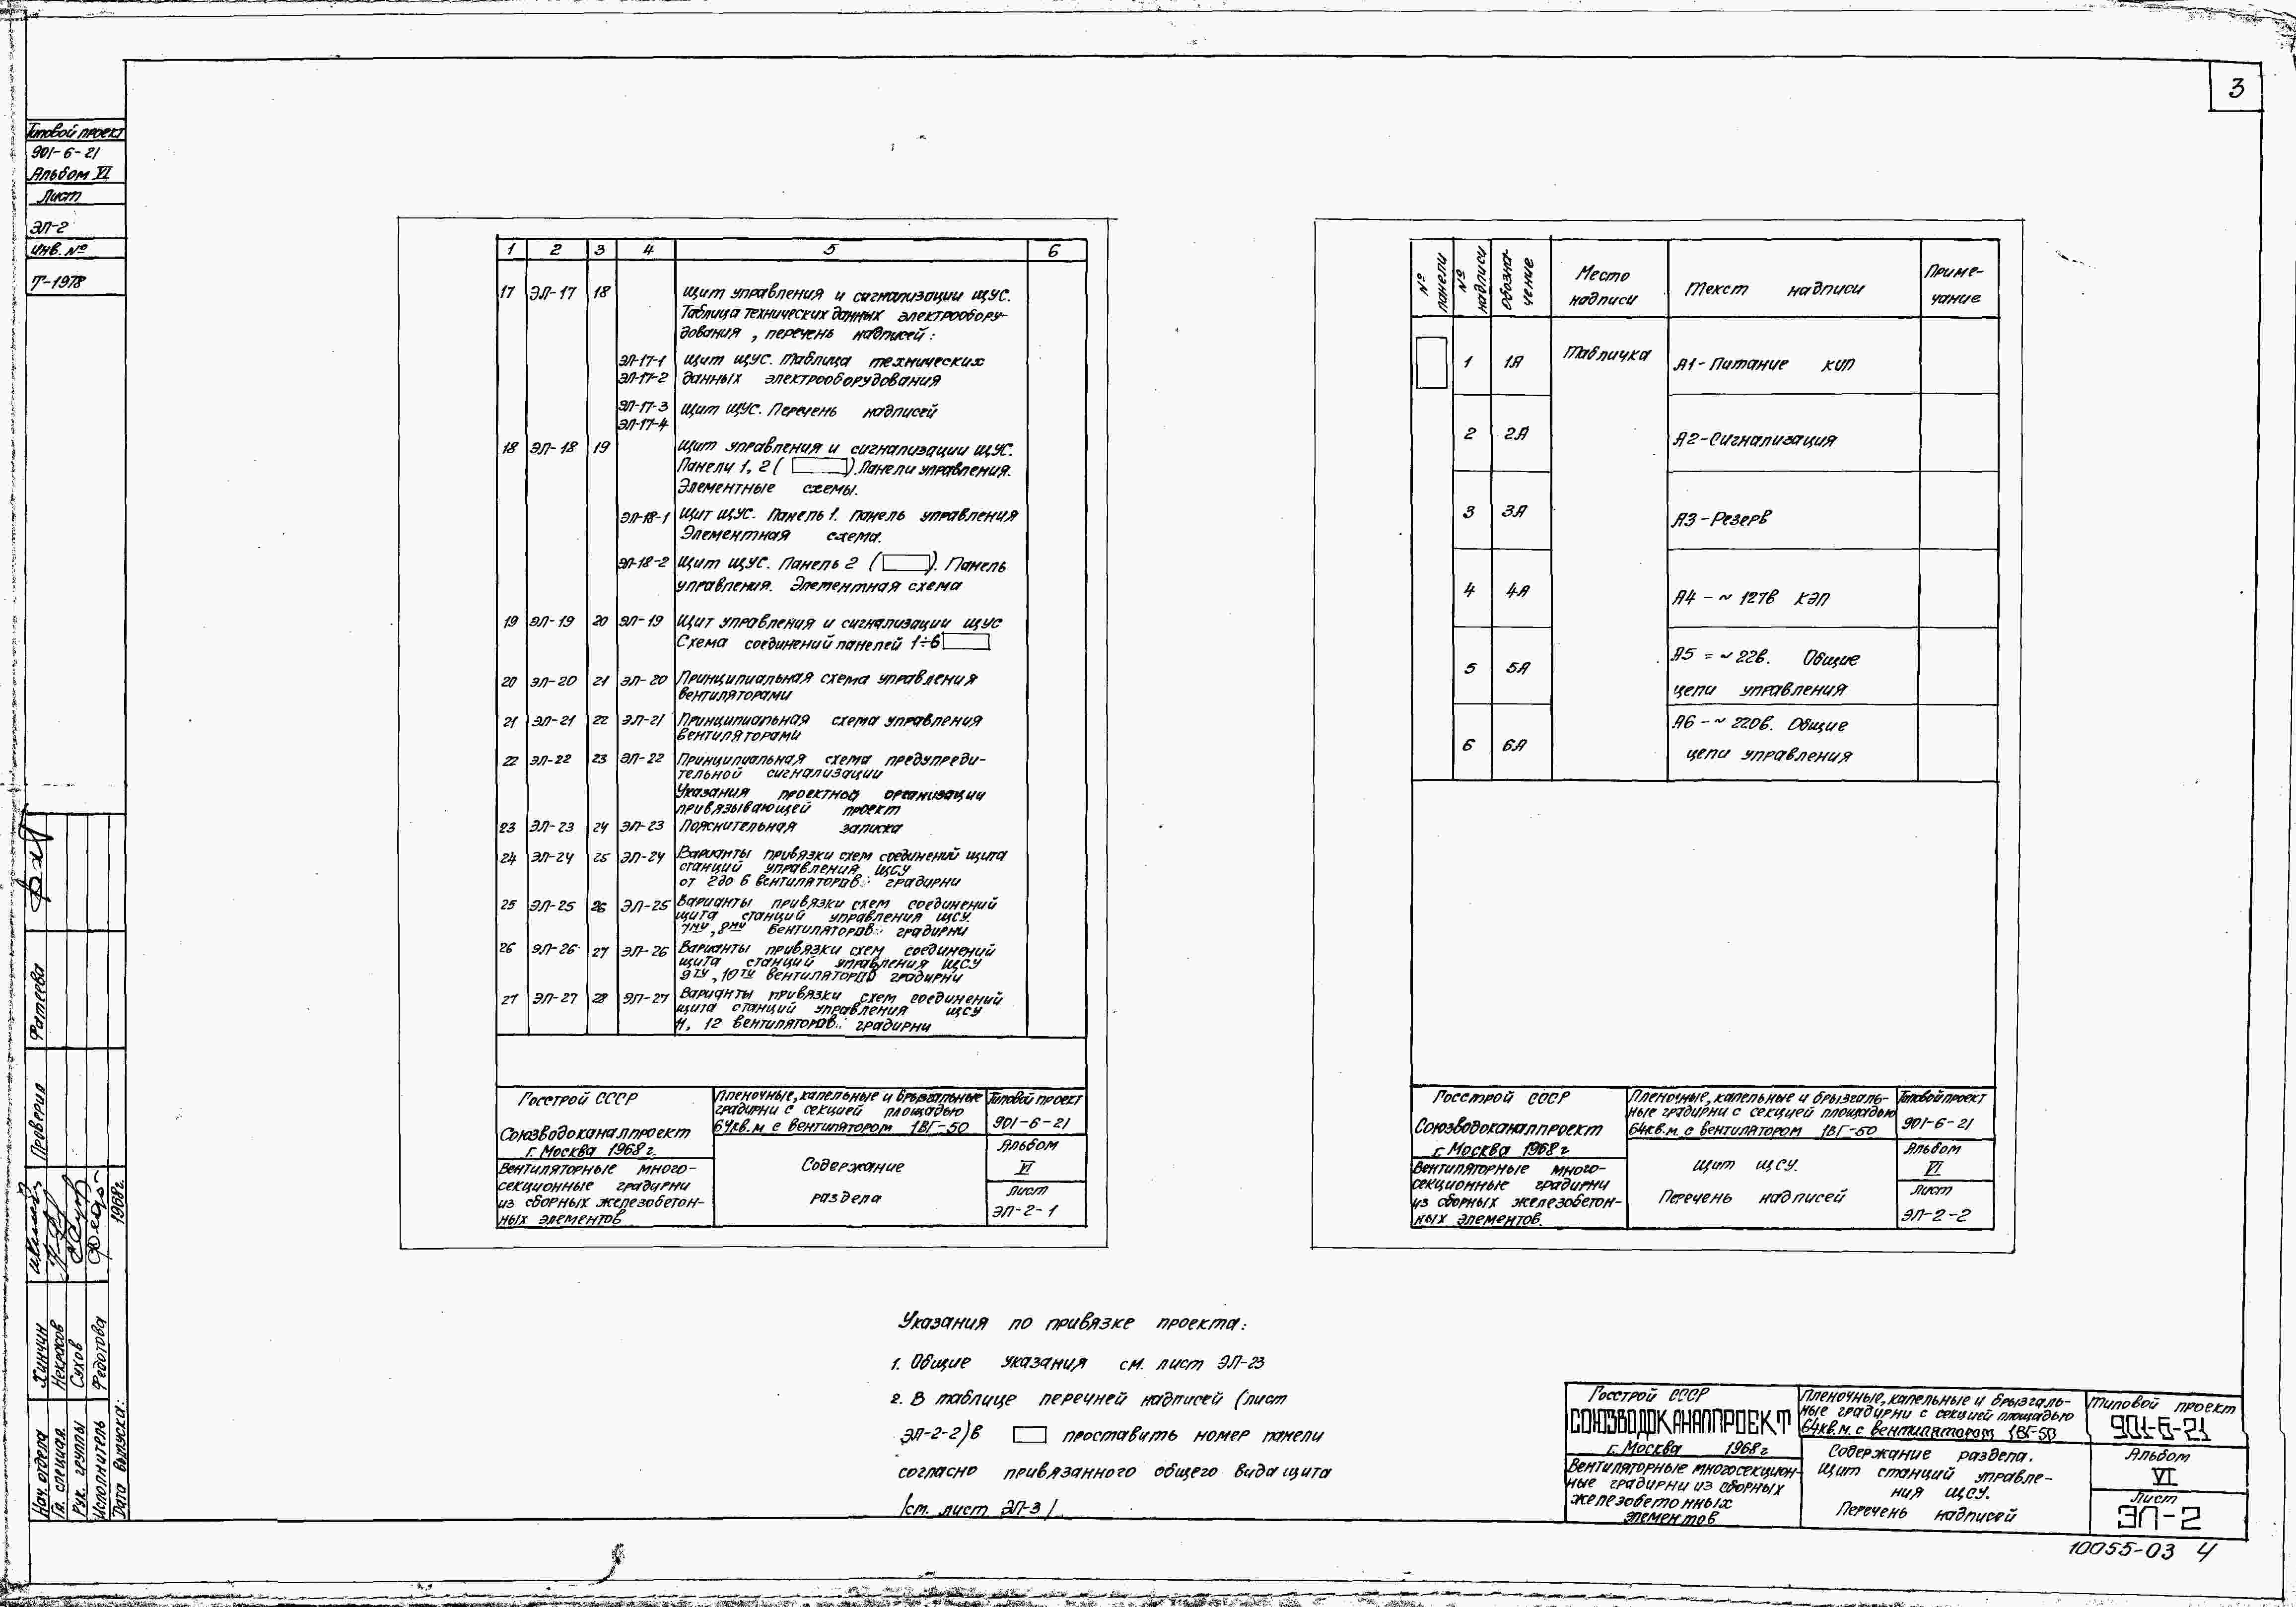 3
Типовой проект
901-6-21
Альбом VI
Лист
ЭЛ-2
Инв. №
Т-1978
1 2 3 4 5 6
17 ЭЛ-17 18 Щит управления и сигнализации ЩУС.
Таблица технических данных электрообору-
дования, перечень надписей:
ЭЛ-17-1 Щит ЩУС. Таблица технических
ЭЛ-17-2 данных электрооборудования
ЭЛ-17-3 Щит ЩУС. Перечень надписей
ЭЛ-17-4
18 ЭЛ-18 19 Щит управления и сигнализации ЩУС.
Панели 1, 2 ( ). Панели управления.
Элементные схемы.
ЭЛ-18-1 Щит ЩУС. Панель 1. Панель управления
Элементная схема.
ЭЛ-18-2 Щит ЩУС. Панель 2 ( ). Панель
управления. Элементная схема
19 ЭЛ-19 20 ЭЛ-19 Щит управления и сигнализации ЩУС
Схема соединений панелей 1÷6
20 ЭЛ-20 21 ЭЛ-20 Принципиальная схема управления
вентиляторами
21 ЭЛ-21 22 ЭЛ-21 Принципиальная схема управления
вентиляторами
22 ЭЛ-22 23 ЭЛ-22 Принципиальная схема предупреди-
тельной сигнализации
Указания проектной организации
привязывающей проект
23 ЭЛ-23 24 ЭЛ-23 Пояснительная записка
24 ЭЛ-24 25 ЭЛ-24 Варианты привязки схем соединений щита
станций управления ЩСУ
от 2до 6 вентиляторов градирни
25 ЭЛ-25 26 ЭЛ-25 Варианты привязки схем соединений
щита станций управления ЩСУ.
7му, 8му вентиляторов градирни
26 ЭЛ-26 27 ЭЛ-26 Варианты привязки схем соединений
щита станций управления ЩСУ
9ту, 10ту вентиляторов градирни
27 ЭЛ-27 28 ЭЛ-27 Варианты привязки схем соединений
щита станций управления ЩСУ
11, 12 вентиляторов градирни
Госстрой СССР
Союзводоканалпроект
г. Москва 1968г.
Вентиляторные много-
секционные градирни
из сборных железобетон-
ных элементов
Пленочные, капельные и брызгальные
градирни с секцией площадью
64кв.м с вентилятором 1ВГ-50
Содержание
раздела
Типовой проект
901-6-21
Альбом
VI
Лист
ЭЛ-2-1
№ панели
№ надписи
Обозна-
чение
Место
надписи
Текст надписи
Приме-
чание
1 1А Табличка А1-Питание КИП
2 2А А2-Сигнализация
3 3А А3-Резерв
4 4А А4-~ 127в КЭП
5 5А А5 = ~ 22в. Общие
цепи управления
6 6А А6-~ 220в. Общие
цепи управления
Госстрой СССР
Союзводоканалпроект
г. Москва 1968г
Вентиляторные много-
секционные градирни
из сборных железобетон-
ных элементов.
Пленочные, капельные и брызгаль-
ные градирни с секцией площадью
64кв.м. с вентилятором 1ВГ-50
Щит ЩСУ.
Перечень надписей
Типовой проект
901-6-21
Альбом
VI
Лист
ЭЛ-2-2
Указания по привязке проекта:
1. Общие указания см. лист ЭЛ-23
2. В таблице перечней надписей (лист
ЭЛ-2-2) в проставить номер панели
согласно привязанного общего вида щита
/см. лист ЭЛ-3/
Проверил Фатеева
Нач. отдела Хинчин
Гл. специал. Некрасов
Рук. группы Сухов
Исполнитель Федотова
Дата выпуска: 1968г.
Госстрой СССР
СОЮЗВОДОКАНАЛПРОЕКТ
г. Москва 1968г
Вентиляторные многосекцион-
ные градирни из сборных
железобетонных
элементов
Пленочные, капельные и брызгаль-
ные градирни с секцией площадью
64кв.м. с вентилятором 1ВГ-50
Содержание раздела.
Щит станций управле-
ния ЩСУ.
Перечень надписей
Типовой проект
901-6-21
Альбом
VI
Лист
ЭЛ-2
10055-03 4